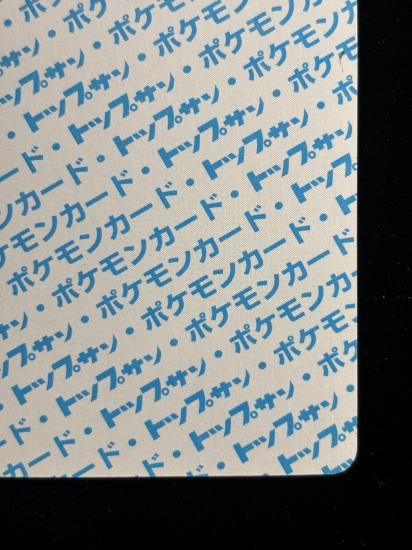 ・ポケモン
サン・ポケモンカ
ップサン・ポケモンカ
・トップサン・ポケモンカ
ード・トップサン・ポケモンカ
カード・トップサン・ポケモンカ
モンカード・トップサン・ポケモ
ポケモンカード・トップサン・ポ
・ポケモンカード・トップサン・
サン・ポケモンカード・トップサ
ップサン・ポケモンカード・ト
トップサン・ポケモンカード・
・トップサン・ポケモンカー
ード・トップサン・ポケモン
カード・トップサン・ポケ
ード・トップサン・
・トップ